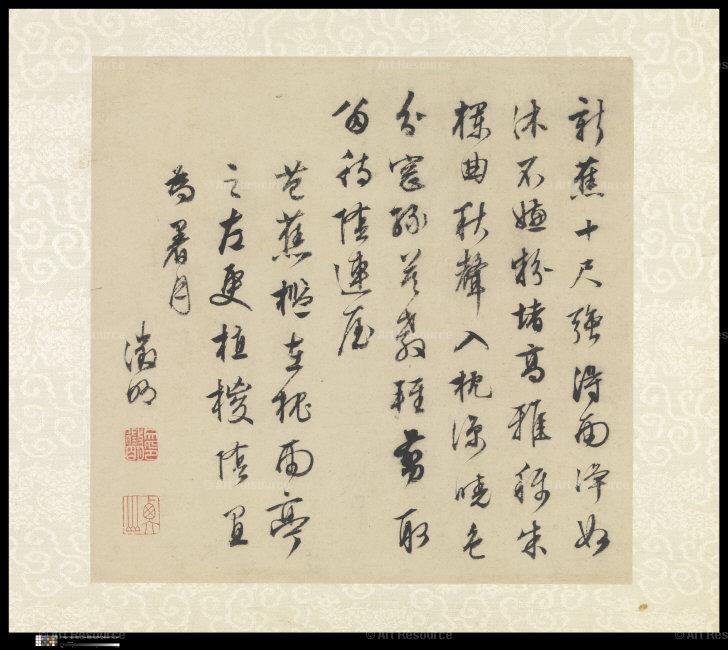 新蕉十尺強得雨淨如
沐不嫌粉堵高雅稱朱
欄曲秋聲入枕涼曉色
分窗綠莫教輕翦取
留待陰連屋
芭蕉檻在槐雨亭
之左更植椶陰宜
為暑月
徵明
© Art Resource